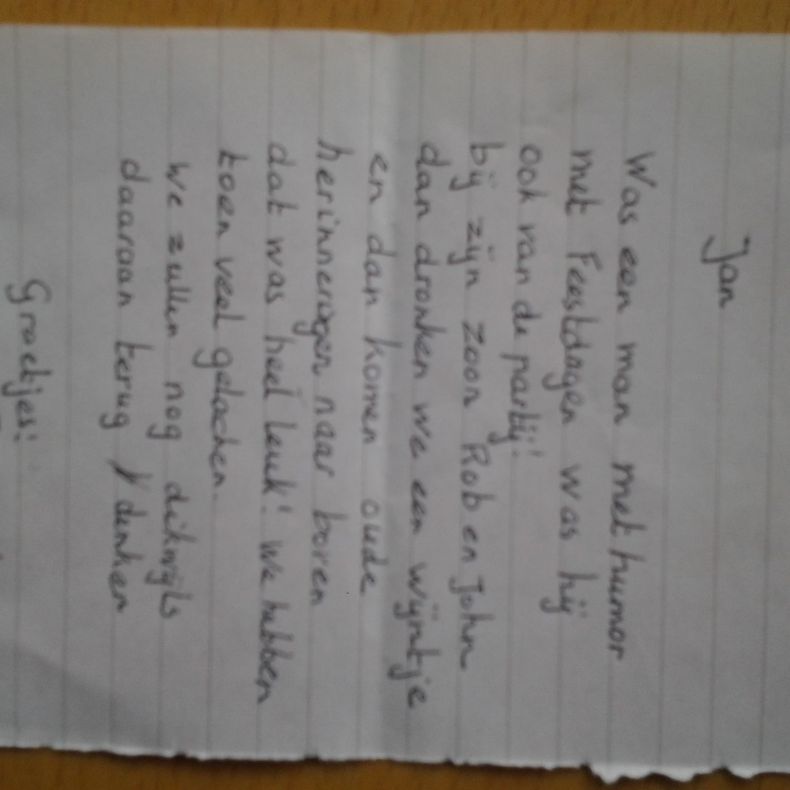 Jan
Was een man met humor
met Feestdagen was hij
ook van de partij!
bij zijn zoon Rob en John
dan dronken we een wijntje
en dan komen oude
herinneringen naar boven
dat was heel leuk! we hebben
toen veel gelachen.
we zullen nog dikwijls
daaraan terug denken
Groetjes!